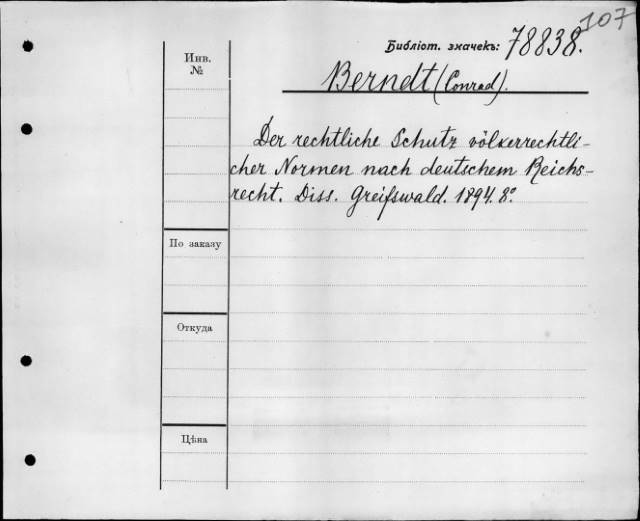 107
Библіот. значекъ: 78838.
Инв.
№
Berndt (Conrad).
Der rechtliche Schutz völkerrechtli-
cher Normen nach deutschem Reichs-
recht. Diss. Greifswald. 1894. 8°.
По заказу
Откуда
Цѣна